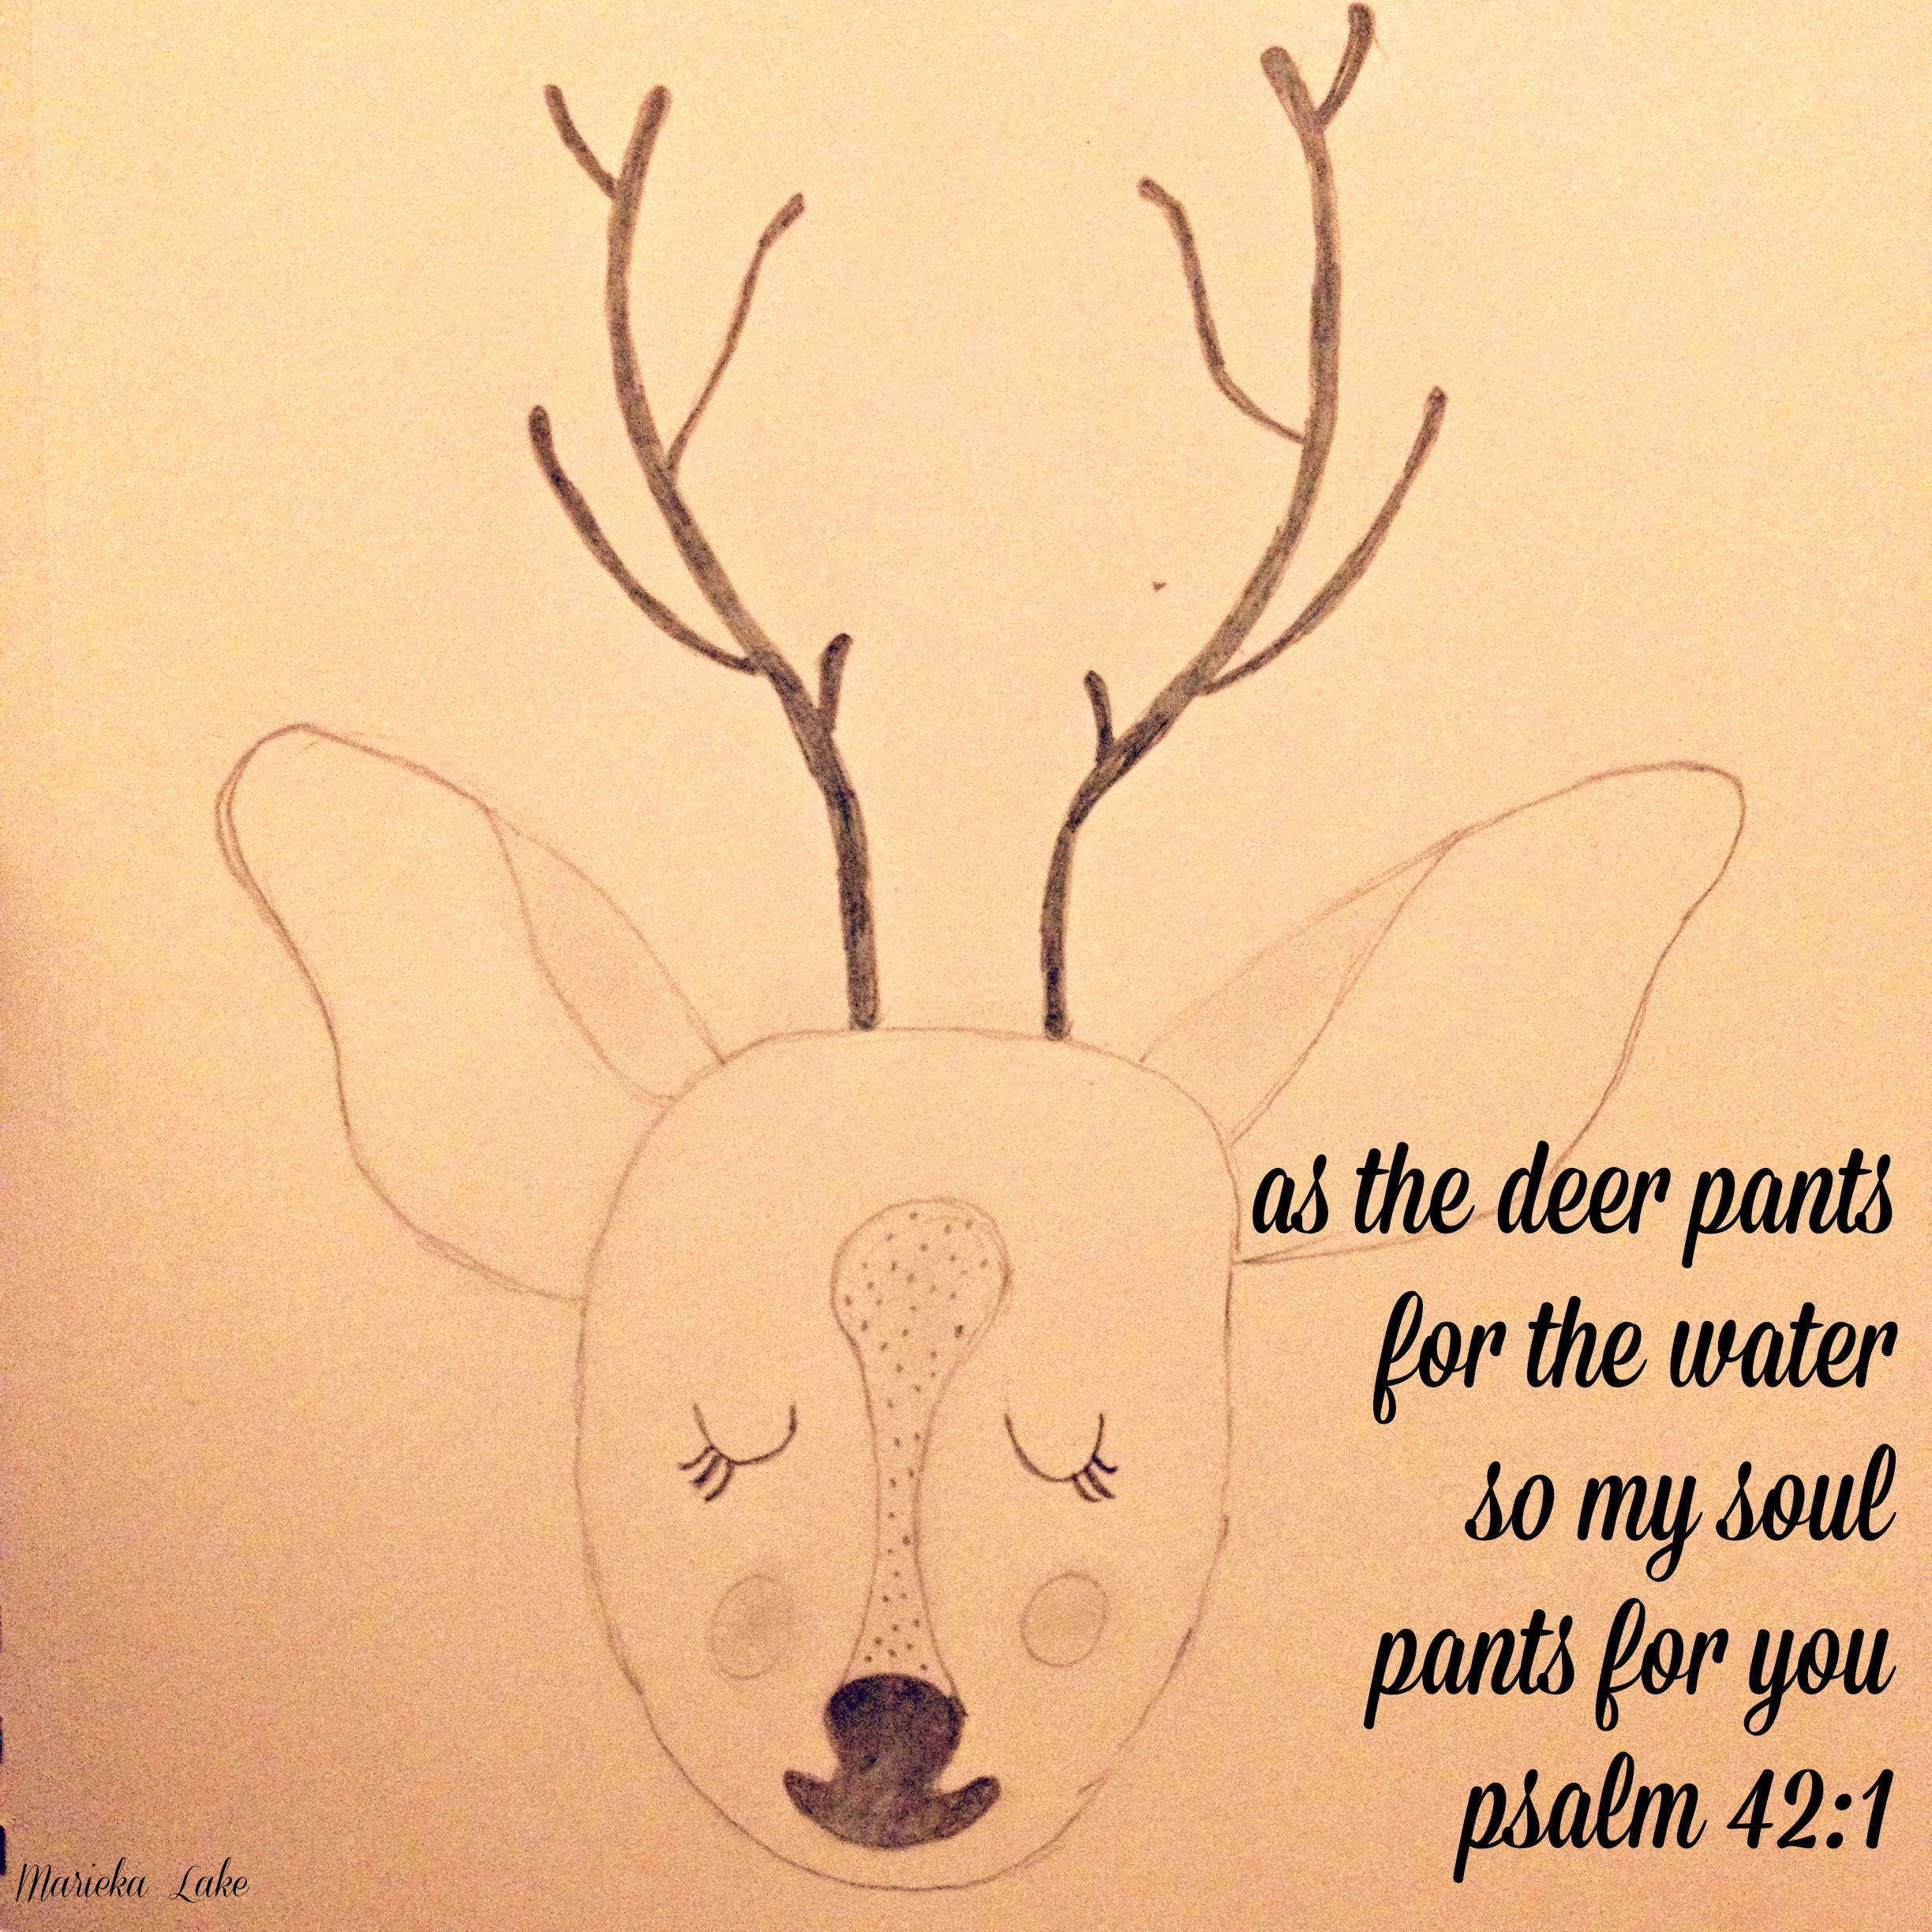 as the deer pants
for the water
so my soul
pants for you
psalm 42:1
Marieka Lake